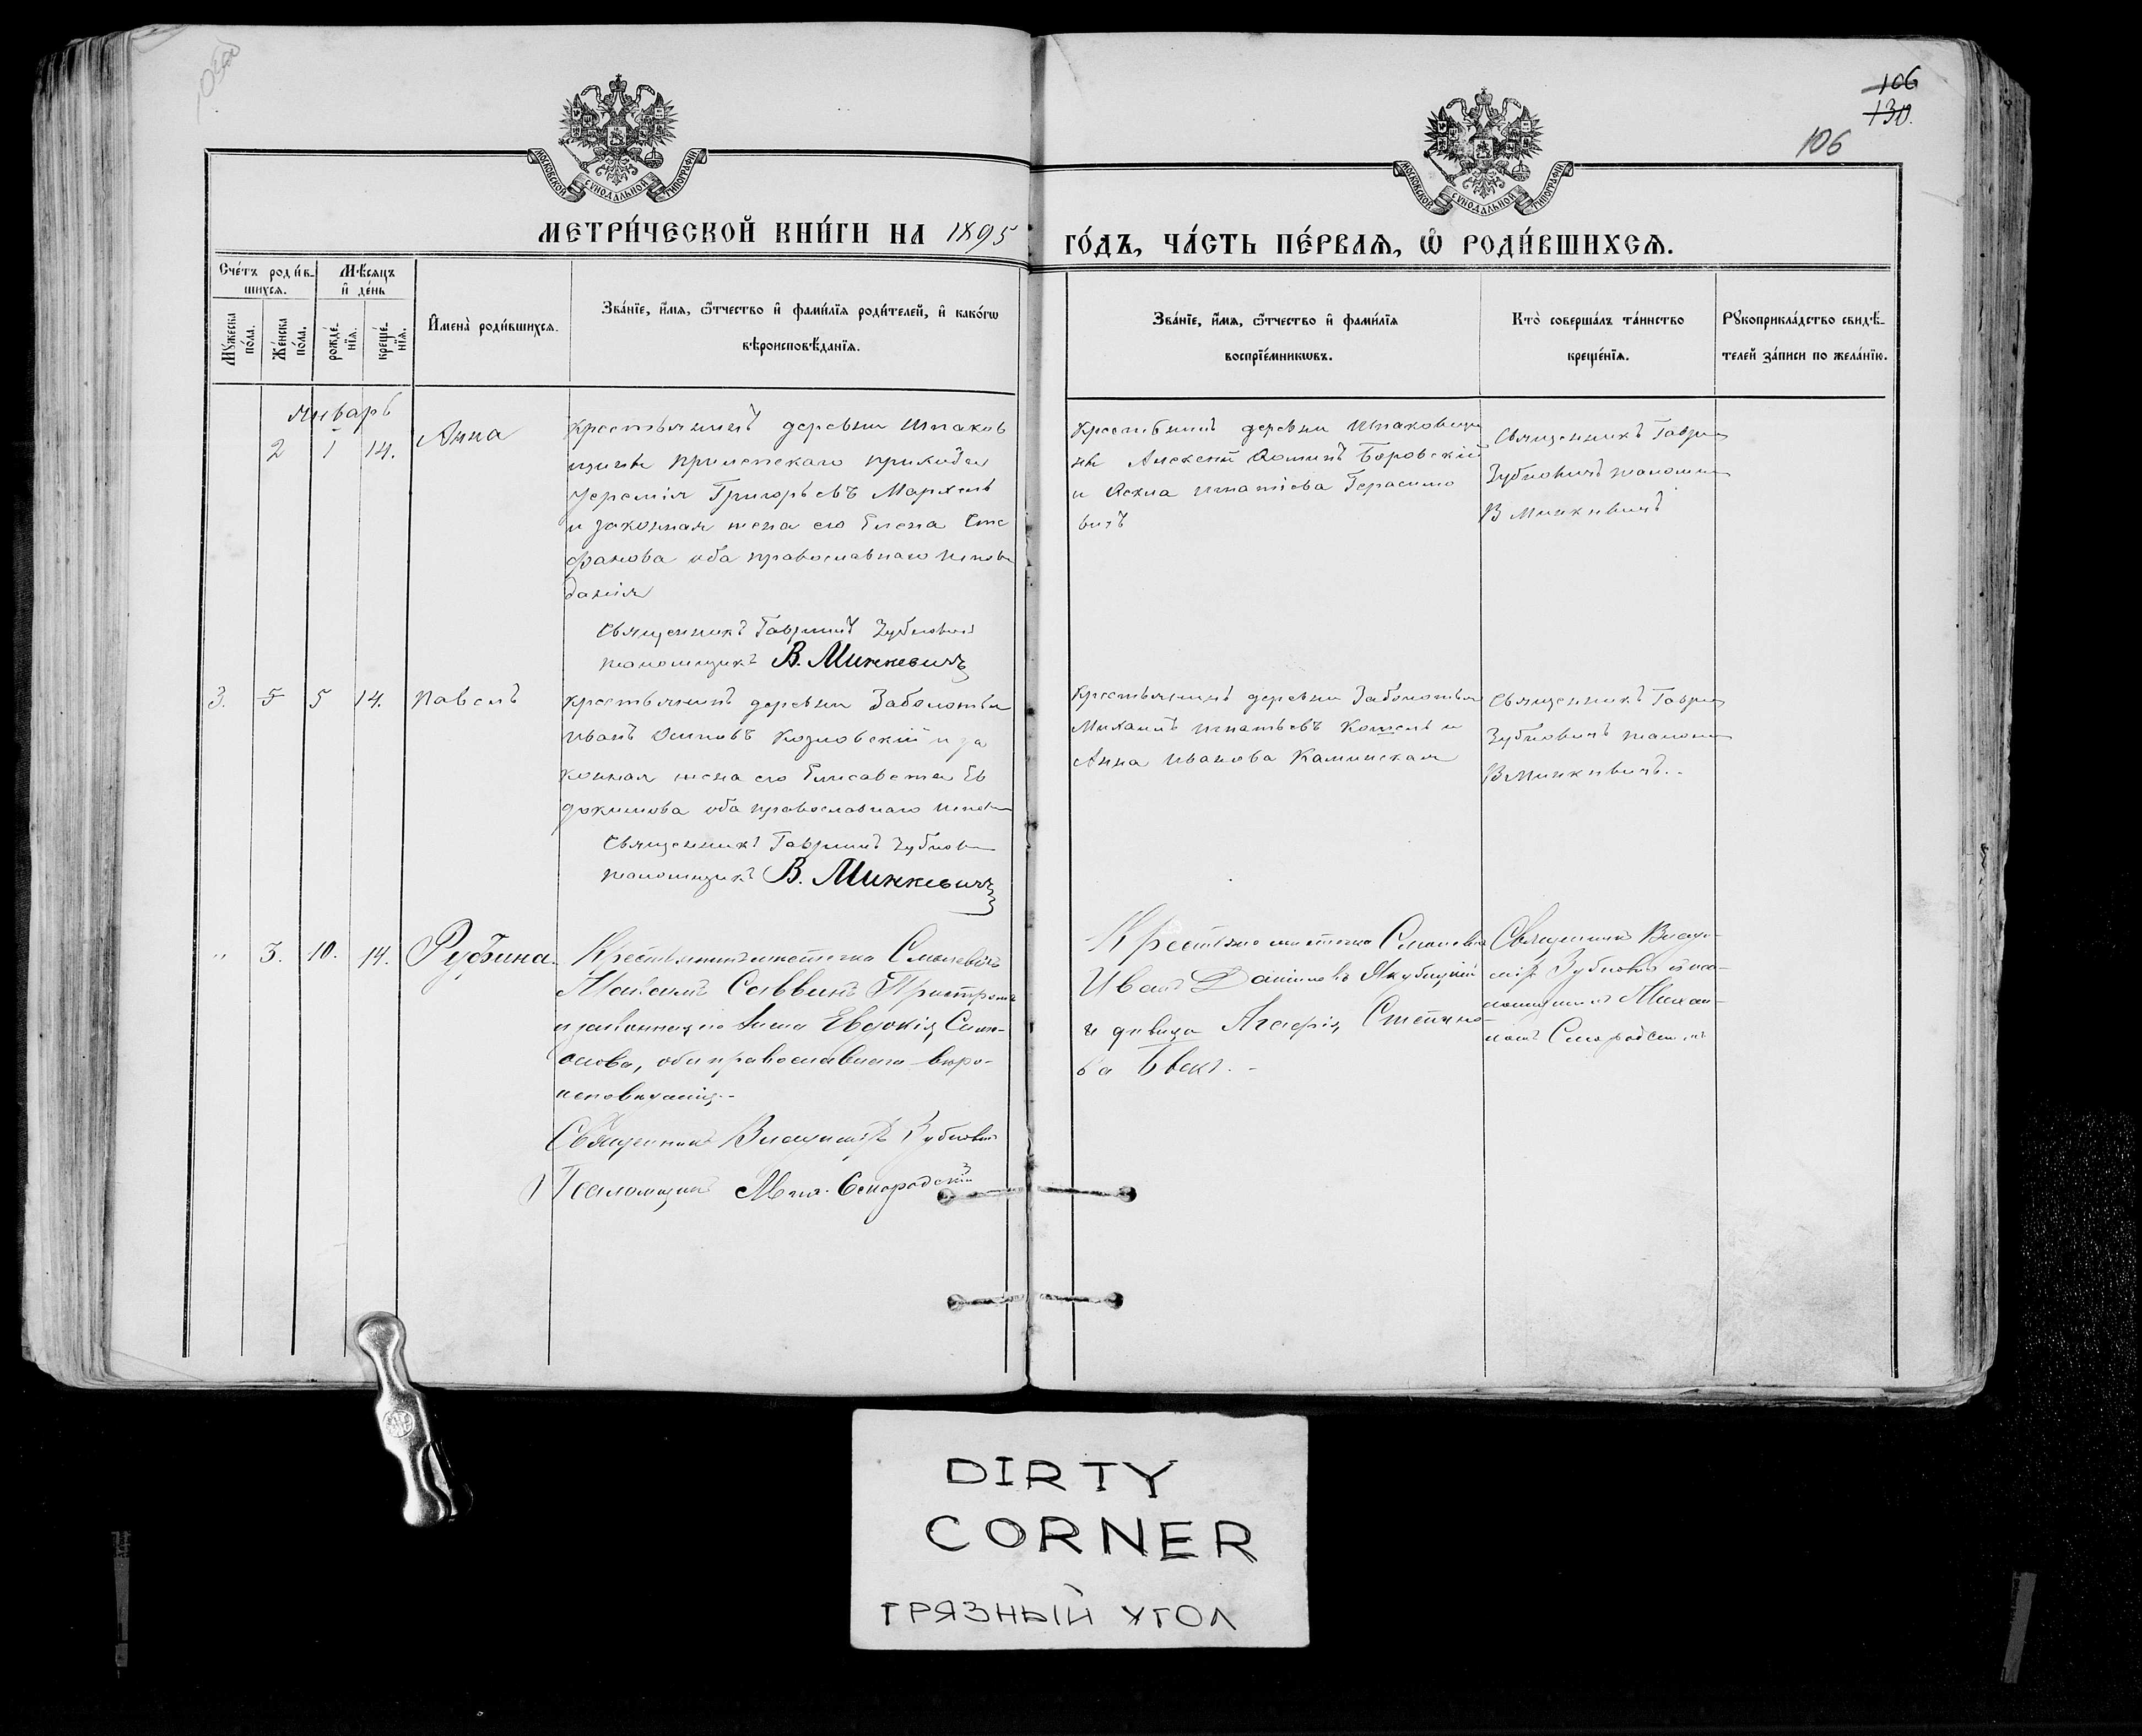 106
130.
106
МОСКОВСКОЙ СѴНОДАЛЬНОЙ ТИПОГРАФІИ
МОСКОВСКОЙ СѴНОДАЛЬНОЙ ТИПОГРАФІИ
МЕТРИ́ЧЕСКОЙ КНИ́ГИ НА 1895
ГО́ДЪ, ЧА́СТЬ ПЕ́РВАѦ, Ѽ РОДИ́ВШИХСѦ.
Сче́тъ роди́в-
шихсѧ.
Мѣ́сѧцъ
и҆ де́нь
Мꙋ́жеска
по́ла.
Же́нска
по́ла.
рожде́-
нїѧ.
креще́-
нїѧ.
И҆мена̀ роди́вшихсѧ.
Зва́нїе, и҆́мѧ, ѻ҆́тчество и҆ фами́лїѧ роди́телей, и҆ како́гѡ
вѣроисповѣ́данїѧ.
Зва́нїе, и҆́мѧ, ѻ҆́тчество и҆ фами́лїѧ
воспрїе́мникѡвъ.
Кто̀ соверша́лъ та́инство
креще́нїѧ.
Рꙋкоприкла́дство свидѣ́-
телей за́писи по жела́нїю.
Январь
2 1 14. Анна
Крестьянинъ деревни Шпаков
щины прихода
Іеремія Григорьевъ
и законная жена его Елена Сте
фанова оба православнаго испов
данія
Священникъ Гавриилъ Зубкович
псаломщикъ В. Минкевичъ
деревни Шпаковщи
ны Алексей Боровскій
и Игнатіева Герасимо
вичъ
Священникъ Гаврии
Зубковичъ псаломщи
В Минкевичъ
3. 5 5 14. Павелъ
Крестьянинъ деревни Заболотья
Иванъ Осиповъ Козловскій и за
конная жена его Елисавета Ев
докимова оба православнаго испов
Священникъ Гавриилъ Зубкови
псаломщикъ В. Минкевичъ
Крестьянинъ деревни Заболотья
Михаилъ Игнатьевъ и
Анна Иванова Каминская
Священникъ Гаврии
Зубковичъ псаломщ
В Минкевичъ.-
" 3. 10. 14. Руфина.
Крестьянинъ местечка Смолевичъ
Саввинъ
и законная его жена Евдокія Сам-
сонова, оба православнаго вѣро-
исповѣданія.-
Священникъ Владиміръ Зубковичъ
Псаломщикъ Мих. Смородскій
местечка Смолевичъ
Иванъ Даніиловъ Якубицкій
и девица Агафія Степано-
ва
Священникъ Влади-
міръ Зубковичъ и пса-
ломщикъ Михаи-
DIRTY
CORNER
ГРЯЗНЫЙ УГОЛ